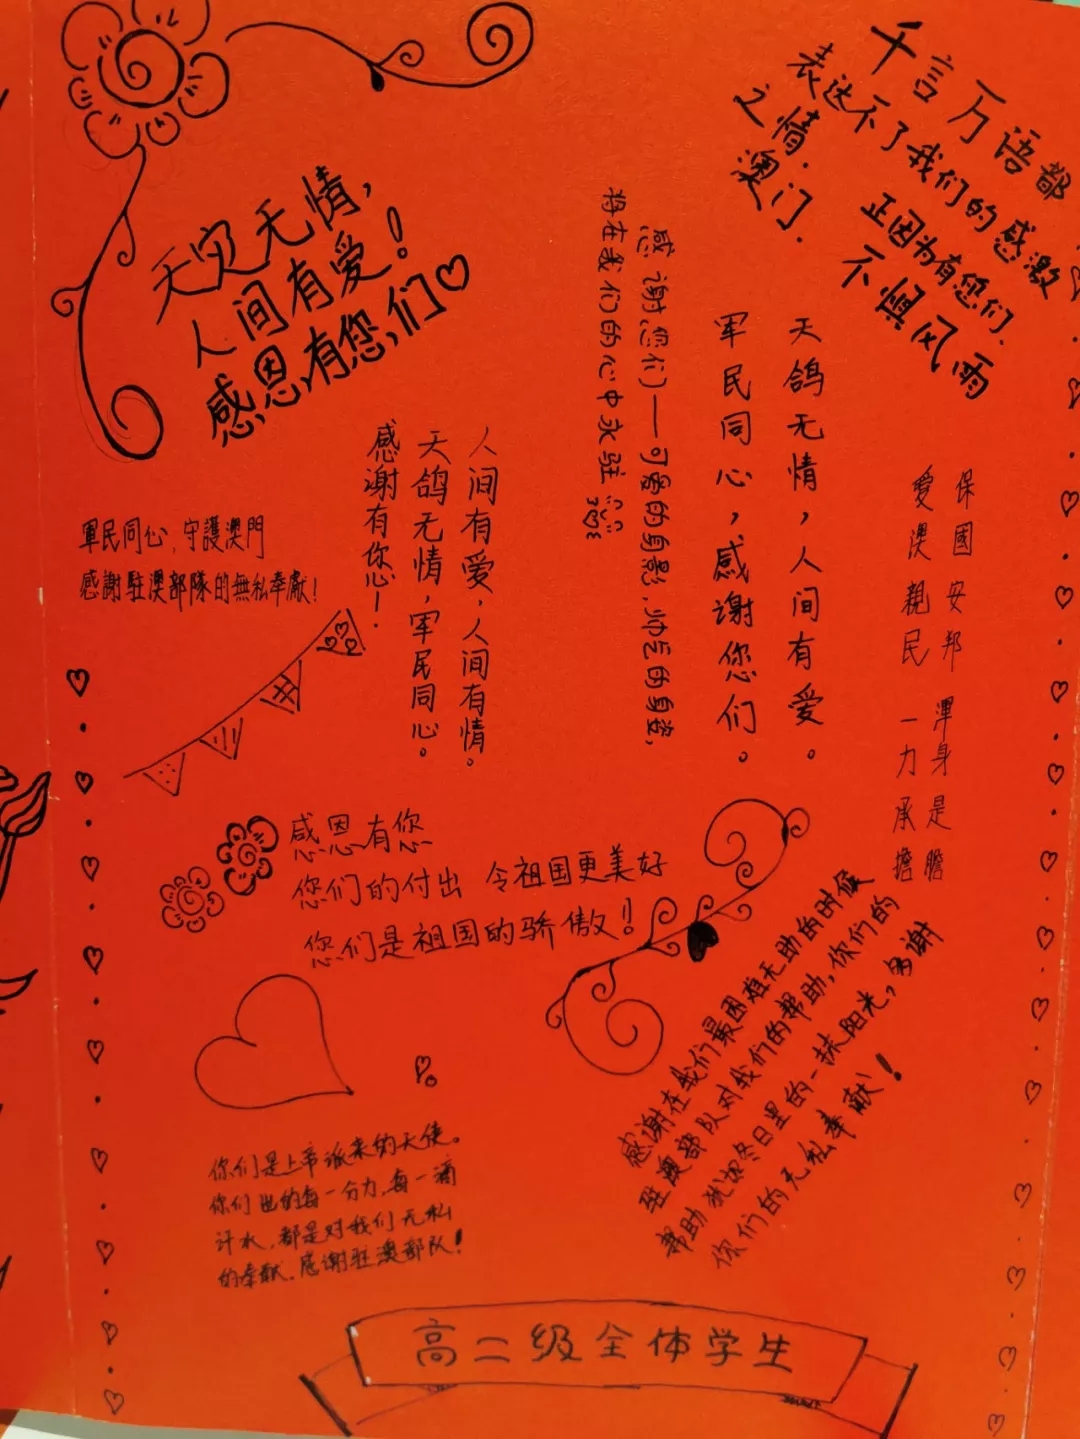 天灾无情，
人间有爱！
感恩有您们
千言万语都
表达不了我们的感激
之情.
正因为有您们.
澳门.
不惧风雨
感谢您们一可爱的身影、帅气的身姿，
将在我们的心中永驻
天鸽无情，人间有爱。
军民同心，感谢您们。
保國安邦 渾身是膽
愛澳親民 一力承擔
人间有爱，人间有情。
天鸽无情，军民同心。
感谢有你心！
軍民同心，守護澳門
感謝駐澳部隊的無私奉獻！
感恩有您
您们的付出 令祖国更美好
您们是祖国的骄傲！
感谢在我们最困难无助的时候
驻澳部队对我们的帮助，你们的
帮助犹如冬日里的一抹阳光，多谢
你们的无私奉献！
你们是上帝派来的天使。
你们出的每一分力，每一滴
汗水，都是对我们无私
的奉献。感谢驻澳部队！
高二级全体学生